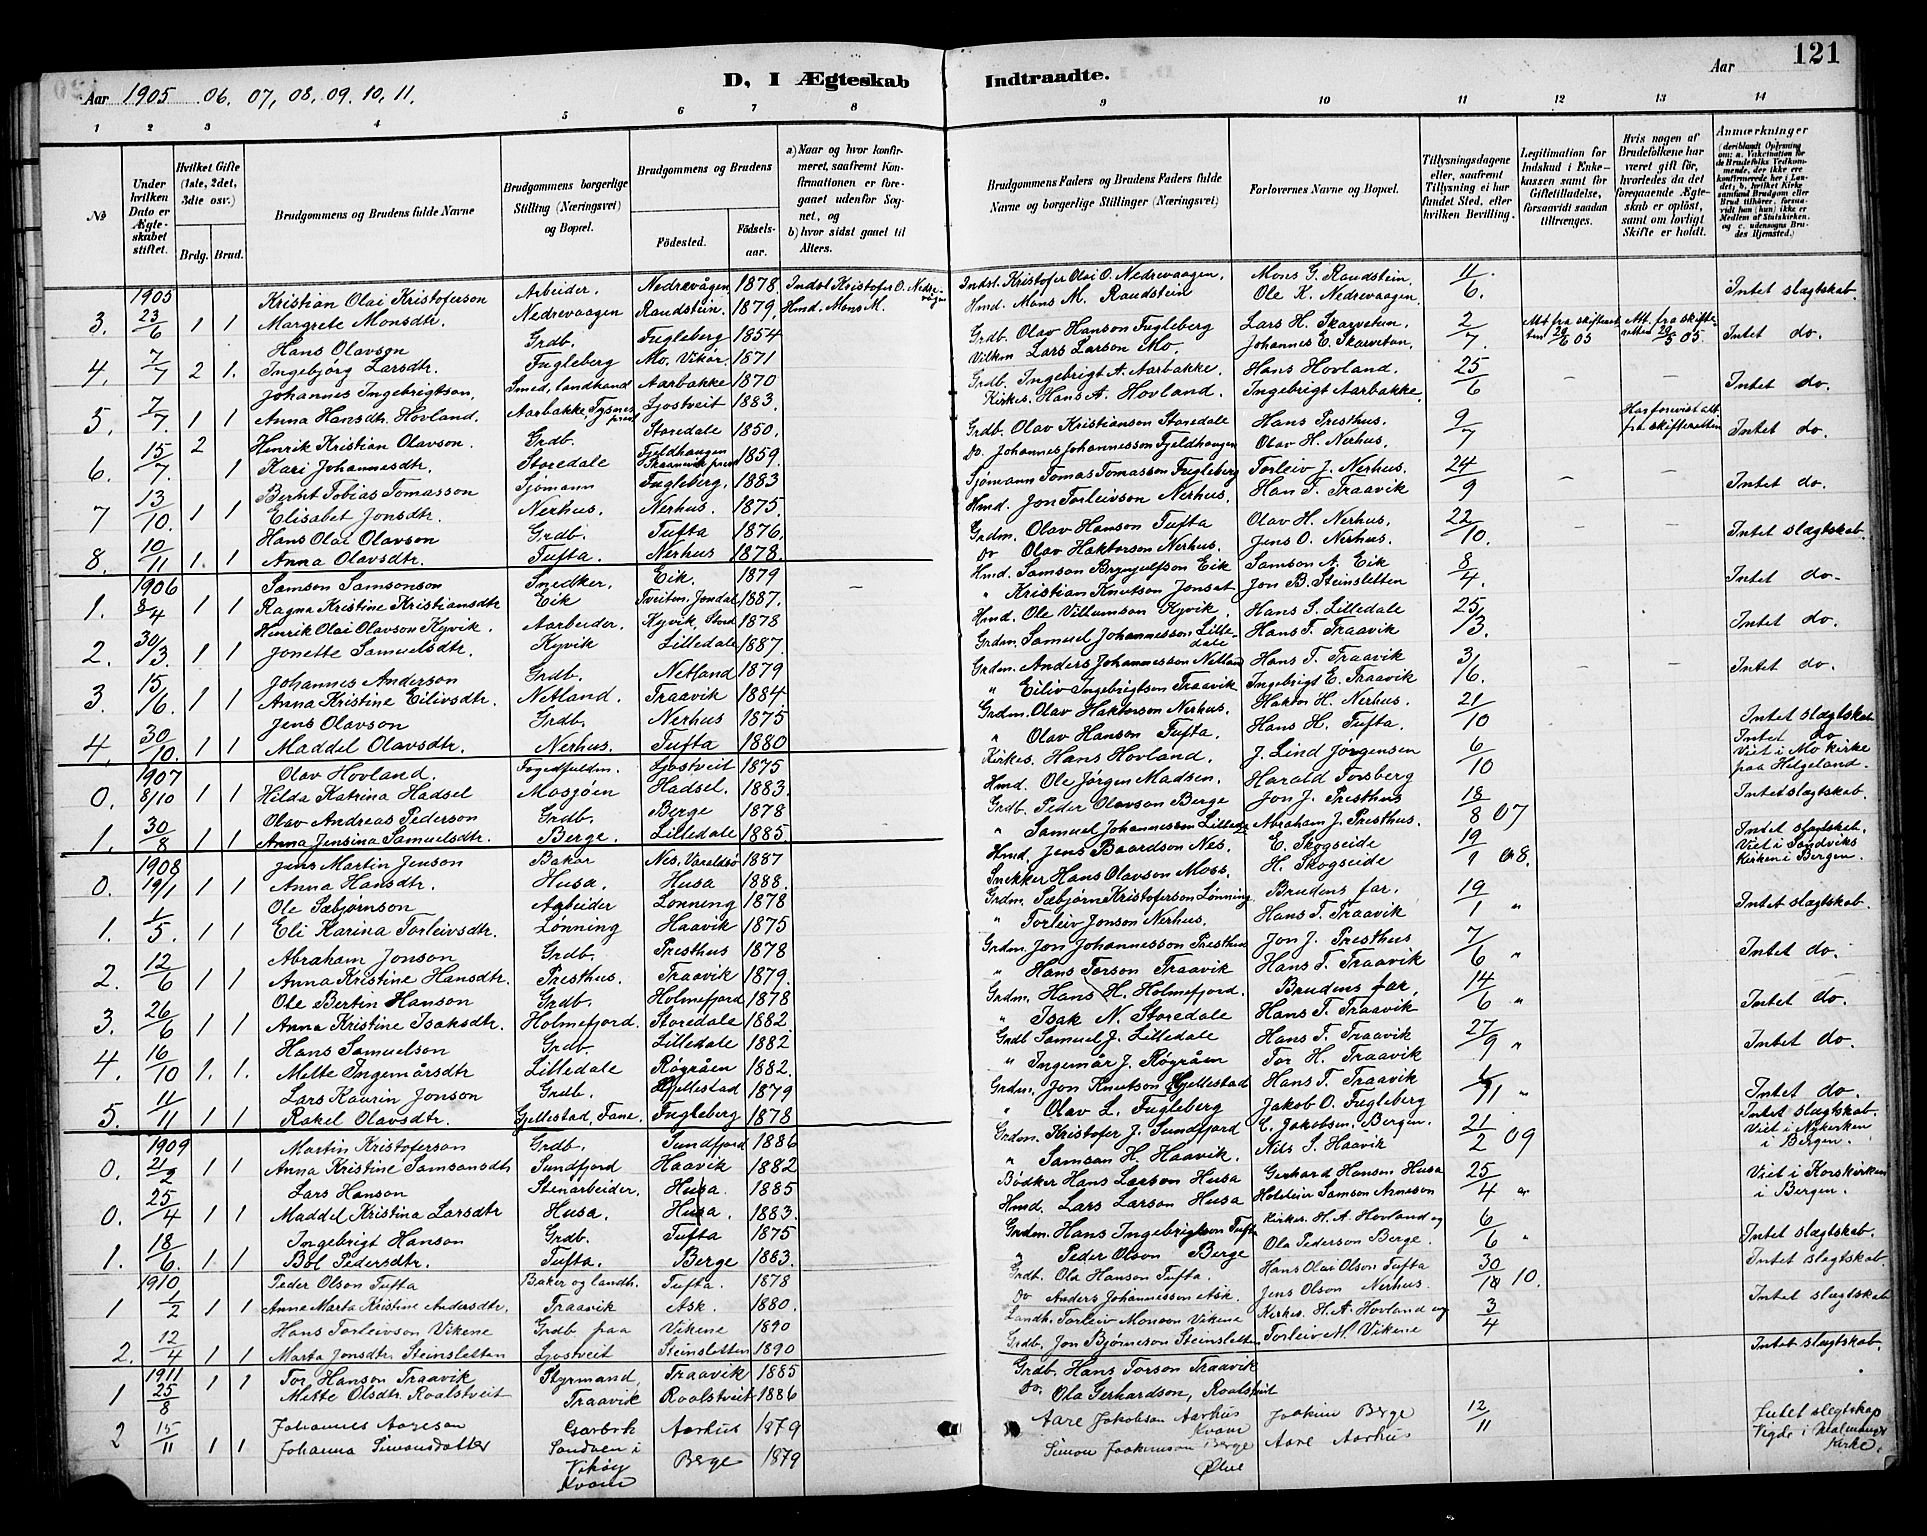 121
D, I Ægteskab Indtraadte.
Aar 1905 06. 07, 08, 09. 10, 11. Aar
1 2 3 4 5 6 7 8 9 10 11 12 13 14
№
Under hvilken Dato er Ægteskabet stiftet.
Hvilket Gifte (1ste, 2det, 3dte osv.)
Brdg. Brud.
Brudgommens og Brudens fulde Navne
Brudgommens borgerlige Stilling (Næringsvei) og Bopæl.
Brudgommens og Brudens
Fødested. Fødselsaar.
a) Naar og hvor konfirmeret, saafremt Konfirmationen er foregaaet udenfor Sognet, og b) hvor sidst gaaet til Alters.
Brudgommens Faders og Brudens Faders fulde Navne og borgerlige Stillinger (Næringsvei)
Forlovernes Navne og Bopæl.
Tillysningsdagene eller, saafremt Tillysning ei har fundet Sted, efter hvilken Bevilling.
Legitimation for Indskud i Enkekassen samt for Giftetilladelse, forsaavidt saadan tiltrænges.
Hvis nogen af Brudefolkene har været gift før, hvorledes da det foregaaende Ægteskab er opløst, samt om lovligt Skifte er holdt.
Anmærkninger (deriblandt Oplysning om: a. Vakcination for de Brudefolks Vedkommende, der ikke ere konfirmerede her i Landet; b. hvilket Kirkesamfund Brudgom eller Brud tilhører, forsaavidt han (hun) ikke er Medlem af Statskirken, og c. udensogns Brudes Hjemsted.)
1905 Kristian Olai Kristoferson Arbeider. Nedrevågen 1878 Indst Kristofer O. Nedrevågen Indst. Kristofer Olai O. Nedrevaagen, Mons G. Raudstein, 11/6. Intet slægtskab.
3. 23/6 1 1 Margrete Monsdtr. Nedrevaagen Raudstein. 1879. Hmd. Mons M. Hmd. Mons M. Raudstein Ole K. Nedrevaagen.
Hans Olavson Grdb. Fugleberg 1854 Grdb. Olav Hanson Fugleberg Lars H. Skarvetun. 2/7. Att. fra skifteretten 29/6 05 Att. fra skifteretten 29/5 05. Intet do.
4. 7/7 2 1. Ingebjørg Larsdtr. Fugleberg Mo. Vikør. 1871 Vilkm Lars Larson Mo. Johannes E. Skarvetun.
Johannes Ingebrigtson, Smed, landhand Aarbakke 1870 Grdb. Ingebrigt A. Aarbakke. Hans Hovland. 25/6 – – Intet do.
5. 7/7. 1 1 Anna Hansdtr. Hovland. Aarbakke, Tysnes prest Ljostveit 1883 Kirkes. Hans A. Hovland. Ingebrigt Aarbakke.
Henrik Kristian Olavson. Grdb. Storedale 1850. Grdb. Olav Kristianson Storedale Hans Presthus. 9/7 Har forevist att. fra skifteretten Intet do.
6. 15/7. 2 1 Kari Johannesdtr. Storedale Fjeldhaugen Kraamvik prest 1859. Do. Johannes Johannesson Fjeldhaugen Olav H. Nerhus.
Bernt Tobias Tomasson Sjømann Fugleberg. 1883 Sjømann Tomas Tomasson Fugleberg Torleiv J. Nerhus. 24/9 – Intet do.
7 13/10. 1 1 Elisabet Jonsdtr. Nerhus. Nerhus. 1875. Hmd. Jon Torleivson Nerhus. Hans T. Traavik
Hans Olai Olavson Grdb. Tufta 1876. Grdm. Olav Hanson Tufta Olav H. Nerhus. 22/10. – – Intet slægtskab.
8. 10/11 1. 1 Anna Olavsdtr. Tufta. Nerhus 1878. Do Olav Haktorson Nerhus. Jens O. Nerhus.
1906 Samson Samsonson Snedker. Eik. 1879 – Hmd. Samson Brynjulfson Eik Samson A. Eik 8/4. Intet do.
1. 8/4 1 1 Ragna Kristine Kristiansdtr Eik Tveiten, Jondal 1887. " Kristian Knutson Jonsat Jon B. Steinsletten
Henrik Olai Olavson Kyvik. Aarbeider. Kyvik, Stord 1878 Hmd. Ole Villumson Kyvik. Hans S. Lilledale 25/3. Intet do.
2. 30/3. 1 1 Jonette Samuelsdtr. Kyvik Lilledale 1887. Grdm. Samuel Johannesson Lilledale Hans T. Traavik
Johannes Anderson Grdb. Netland 1879 Grdm. Anders Johannesson Netland Hans T. Traavik 3/6. – – Intet do.
3. 15/6. 1 1 Anna Kristine Eilivsdtr. Netland. Traavik 1884. " Eiliv Ingebrigtson Traavik Ingebrigt E. Traavik
Jens Olavson Grdb. Nerhus 1875 Grdm. Olav Haktorson Nerhus. Haktor H. Nerhus. 21/10 Intet slægtskab
4. 30/10. 1 1 Maddel Olavsdtr. Nerhus. Tufta 1880 " Olav Hanson Tufta. Hans H. Tufta.
1907 Olav Hovland. Fogedfuldm. Ljostveit 1875 Kirkes. Hans Hovland. J. Lind Jørgensen 6/10 Intet do Viet i Mo kirke paa Helgeland.
0. 8/10 1 1 Hilda Katrina Hadsel Mosjøen Hadsel. 1883. Hmd. Ole Jørgen Madsen. Harald Forsberg
Olav Andreas Pederson Grdb. Berge 1878 Grdb. Peder Olavson Berge Jon J. Presthus 18/8 07 Intet slægtskab.
1. 30/8 1 1 Anna Jensina Samuelsdtr. Berge. Lilledale 1885. " Samuel Johannesson Lilledale Abraham J. Presthus.
1908 Jens Martin Jenson Bakar Nes, Varaldsø 1887 Hmd. Jens Baardson Nes. E. Skogseide 19/1 08. Intet slægtskab. Viet i Sandviks Kirken i Bergen.
0. 19/1 1 1 Anna Hansdtr. Husa. Husa 1888. Snekker Hans Olavson Moss. H. Skogseide
Ole Sæbjørnson Arbeider Lønning 1878 Grdm. Sæbjørn Kristoferson Lønning Brudens far. 19/1 " Intet slægtskab.
1. 1/5. 1 1 Eli Karina Torleivsdtr. Lønning Haavik 1875 " Torleiv Jonson Nerhus. Hans T. Traavik
Abraham Jonson Grdb. Presthus 1878 Grdm. Jon Johannesson Presthus Jon J. Presthus 7/6 " Intet do.
2. 12/6 1 1 Anna Kristine Hansdtr. Presthus. Traavik 1879. " Hans Torson Traavik Hans T. Traavik
Ole Bertin Hanson Grdb. Holmefjord 1878 Grdm. Hans H. Holmefjord. Brudens far, 14/6 " Intet do.
3. 26/6 1 1 Anna Kristine Isaksdtr. Holmefjord. Storedale 1882. " Isak N. Storedale Hans T. Traavik
Hans Samuelson Grdb. Lilledale 1882 Grdb Samuel J. Lilledale Hans T. Traavik 27/9 " Intet do.
4. 16/10 1. 1. Mette Ingemårsdtr Lilledale Røgråen 1882. " Ingemår J. Røgråen Tor H. Traavik
Lars Kaurin Jonson Grdb. Hjellestad 1879 Grdm. Jon Knutson Hjellestad Hans T. Traavik 1/11 " Intet do.
5. 11/11 1 1 Rakel Olavsdtr. Gjellestad, Fane. Fugleberg 1878 " Olav L. Fugleberg Jakob O. Fugleberg
1909 Martin Kristoferson Grdb. Sundfjord 1886 Grdm. Kristofer J. Sundfjord E. Jakobsen, Bergen. 21/2 09 Intet slægtskab. Viet i Nykirken i Bergen.
0. 21/2 1 1 Anna Kristine Samsonsdtr Sundfjord Haavik 1882 " Samson H. Haavik. Nils S. Haavik
Lars Hanson Stenarbeider, Husa. 1885 Bødker Hans Larson Husa Gerhard Hanson Husa 25/4 " Viet i Korskirken i Bergen.
0. 25/4 1 1 Maddel Kristina Larsdtr Husa. Husa. 1883. Hmd. Lars Larson Husa Hoteleier Samson Arneson
Ingebrigt Hanson Grdb. Tufta 1875 Grdm. Hans Ingebrigtson Tufta Kirkes. H. A. Hovland og 6/6 " Intet slægtskab.
1. 18/6. 1 1 Bol Pedersdtr. Tufta. Berge 1883. " Peder Olson Berge Ola Pederson Berge. Intet slægtskab.
1910 Peder Olson Tufta Baker og landh. Tufta. 1878 Grdb. Ola Hanson Tufta. Hans Olai Olson Tufta 30/10 10. Intet slægtskab
1 1/2 1 1 Anna Marta Kristine Andersdtr. Traavik Ask. 1880. Do Anders Johannesson Ask. Jens Olson Nerhus.
Hans Torleivson Vikene Grdb paa Vikene 1890 Landh. Torleiv Monson Vikene Kirkes. H. A. Hovland og 3/4
2. 12/4 1 1 Marta Jonsdtr. Steinsletten Ljostveit Steinsletten 1890 Grdb. Jon Bjørneson Steinsletten Torleiv M. Vikene Intet slægtskab.
1911 Tor Hanson Traavik Styrmand, Traavik 1885 Grdb. Hans Torson Traavik
1 25/8 1 1 Mette Olsdtr. Roalstveit Traavik Roalstveit 1886 Do. Ola Gerhardson, Roalstveit
Johannes Aareson Gaarbrk Aarhus 1879 Aare Jakobson Aarhus Kvam Joakim Berge 12/11 Intet slegtskap Vigde i Malmanger Kirke.
2 15/11 1 1 Johanna Simonsdotter Sandven i Vikøy Kvam Berge 1879 Simon Joakimson Berge Ølve Aare Aarhus